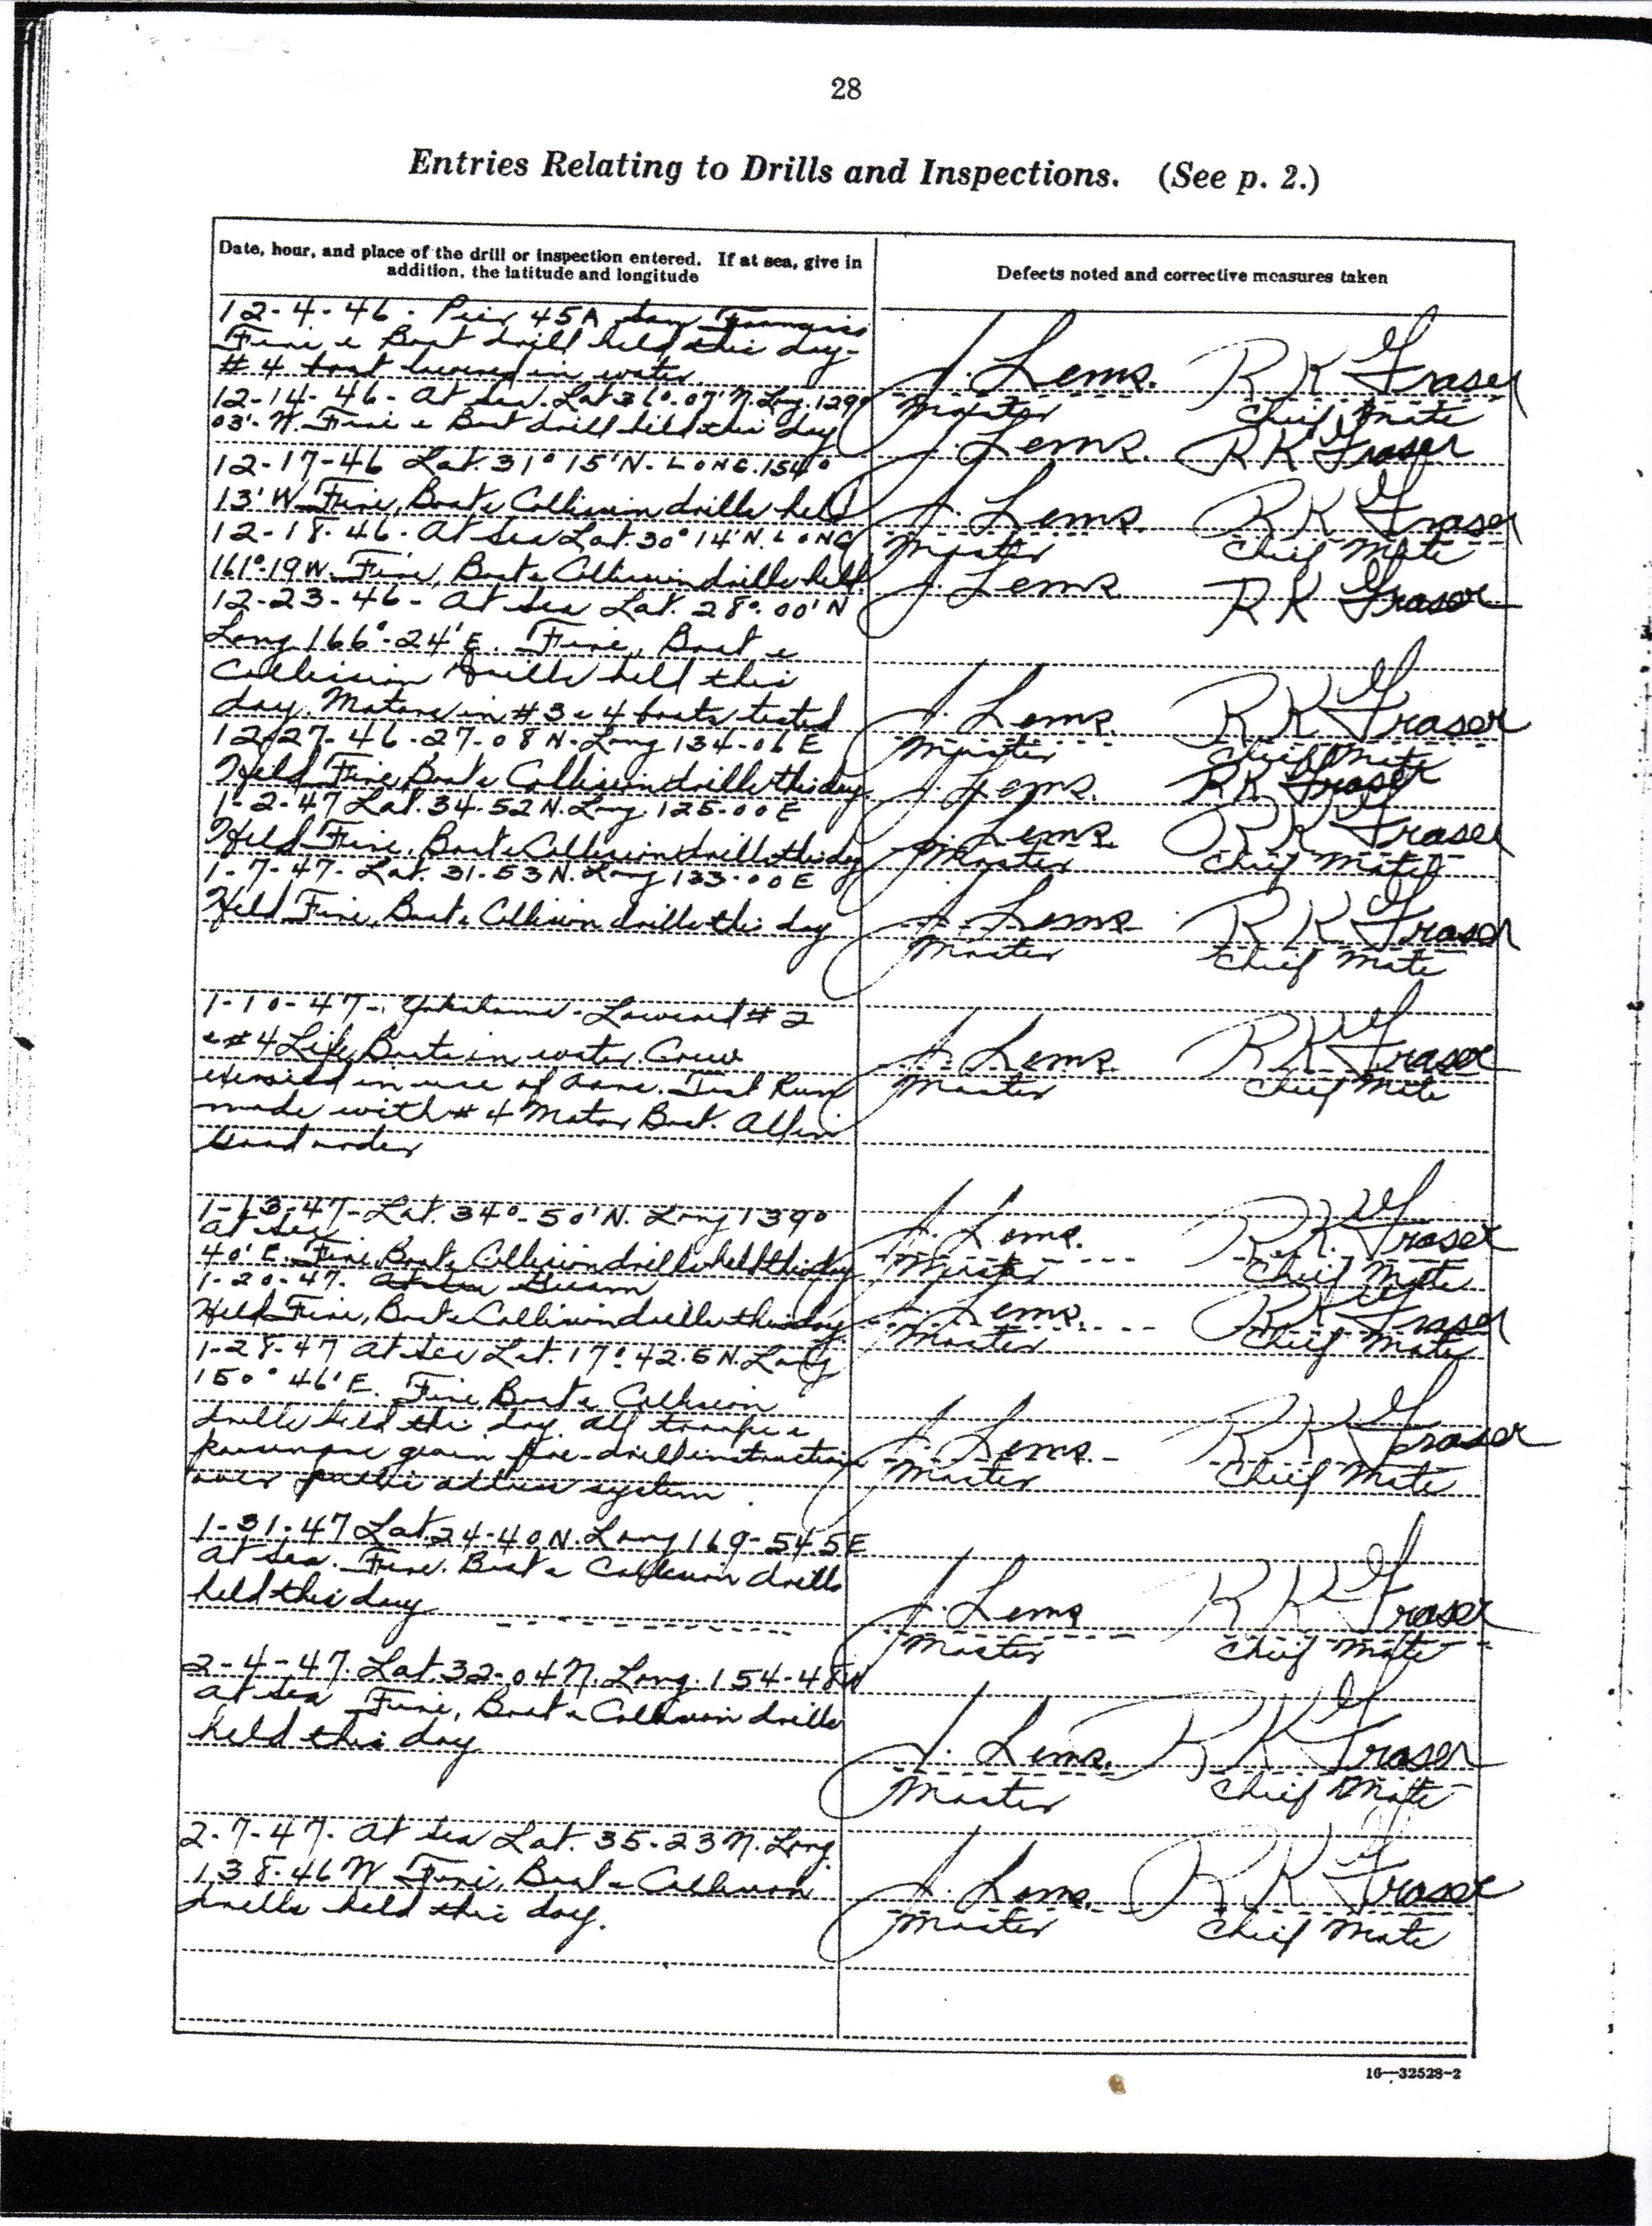 28
Entries Relating to Drills and Inspections. (See p. 2.)
Date, hour, and place of the drill or inspection entered. If at sea, give in
addition, the latitude and longitude
Defects noted and corrective measures taken
12-4-46 - Pier 45A San Francisco
Fire & Boat drill held this day-
#4 boat lowered in water
J. Lems. RK Fraser
Master Chief Mate
12-14-46- At sea. Lat 36°-07' N. Long. 129°
03'- W. Fire & Boat drill held this day
J. Lems. RK Fraser
12-17-46 Lat. 31° 15'N- LONG. 154°
13' W Fire, Boat & Collision drills held
J. Lems. RK Fraser
Master Chief Mate
12-18-46- At sea Lat. 30° 14'N. LONG
161°-19W Fire, Boat & Collision drills held
J. Lems RK Fraser
12-23-46- At sea Lat. 28°-00'N
Long 166°-24'E. Fire, Boat &
Collision drills held this
day. Motors in #3 & 4 boats tested
J. Lems. RK Fraser
Master Chief Mate
12-27-46-27-08N-Long 134-06E
Held Fire, Boat & Collision drills this day.
J. Lems. RK Fraser
1-2-47 Lat. 34-52N. Long. 125-00E
Held Fire, Boat & Collision drills this day
J. Lems. RK Fraser
Master Chief Mate
1-7-47- Lat. 31-53N. Long 133-00E
Held Fire, Boat & Collision drills this day
J. Lems RK Fraser
Master Chief Mate
1-10-47- Yokohama - Lowered #2
& #4 Life Boats in water. Crew
exercised in use of oars. Test Run
made with #4 Motor Boat. All in
Good order
J. Lems. RK Fraser
Master Chief Mate
1-13-47- Lat. 34°-50'N. Long 139°
At sea
40'E. Fire, Boat & Collision drills held this day
J. Lems. RK Fraser
Master Chief Mate
1-20-47. At sea Guam
Held Fire, Boat & Collision drills this day.
J. Lems. RK Fraser
Master Chief Mate
1-28-47 At sea Lat. 17°-42.5N. Long
150° 46'E. Fire, Boat & Collision
drills held this day. All troops &
given fire-drill instructions
over public address system.
J. Lems. RK Fraser
Master Chief Mate
1-31-47 Lat. 24-40N. Long 169-54.5E
At sea. Fire, Boat & Collision drills
held this day
J. Lems RK Fraser
Master Chief Mate
2-4-47. Lat. 32-04N. Long. 154-48W
At sea Fire, Boat & Collision drills
held this day
J. Lems. RK Fraser
Master Chief Mate
2-7-47- At sea Lat. 35-23N. Long.
138-46W Fire, Boat & Collision
drills held this day.
J. Lems. RK Fraser
Master Chief Mate
16—32528-2